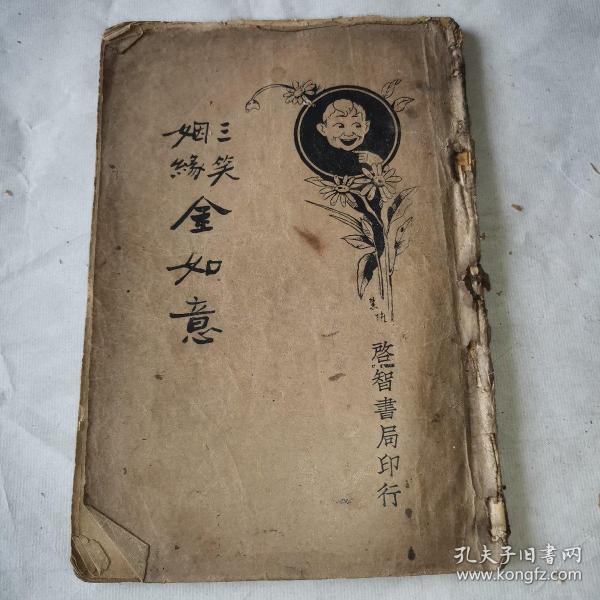 三笑
姻緣
金如意
啓智書局印行
孔夫子旧书网
www.kongfz.com